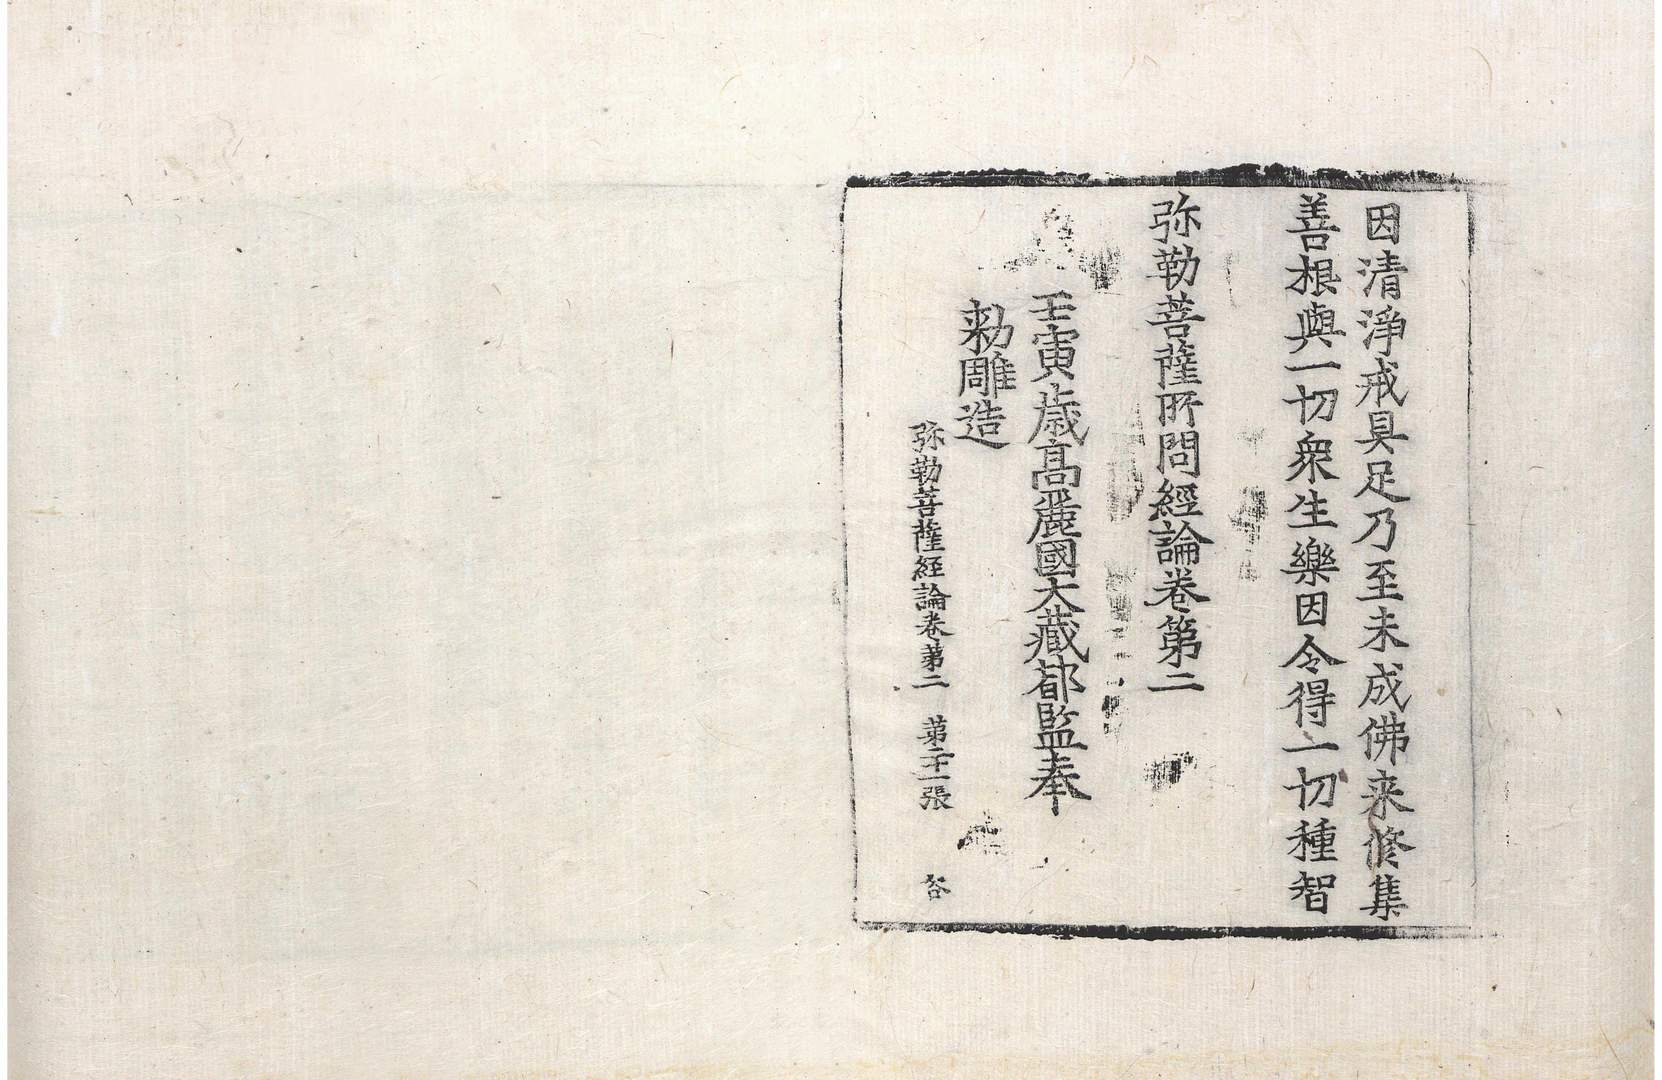 因清淨戒具足乃至未成佛来修集
善根與一切衆生樂因令得一切種智
弥勒菩薩所問經論卷第二
壬寅歳高麗國大藏都監奉
勑雕造
弥勒菩薩経論卷第二 第二十一張 谷